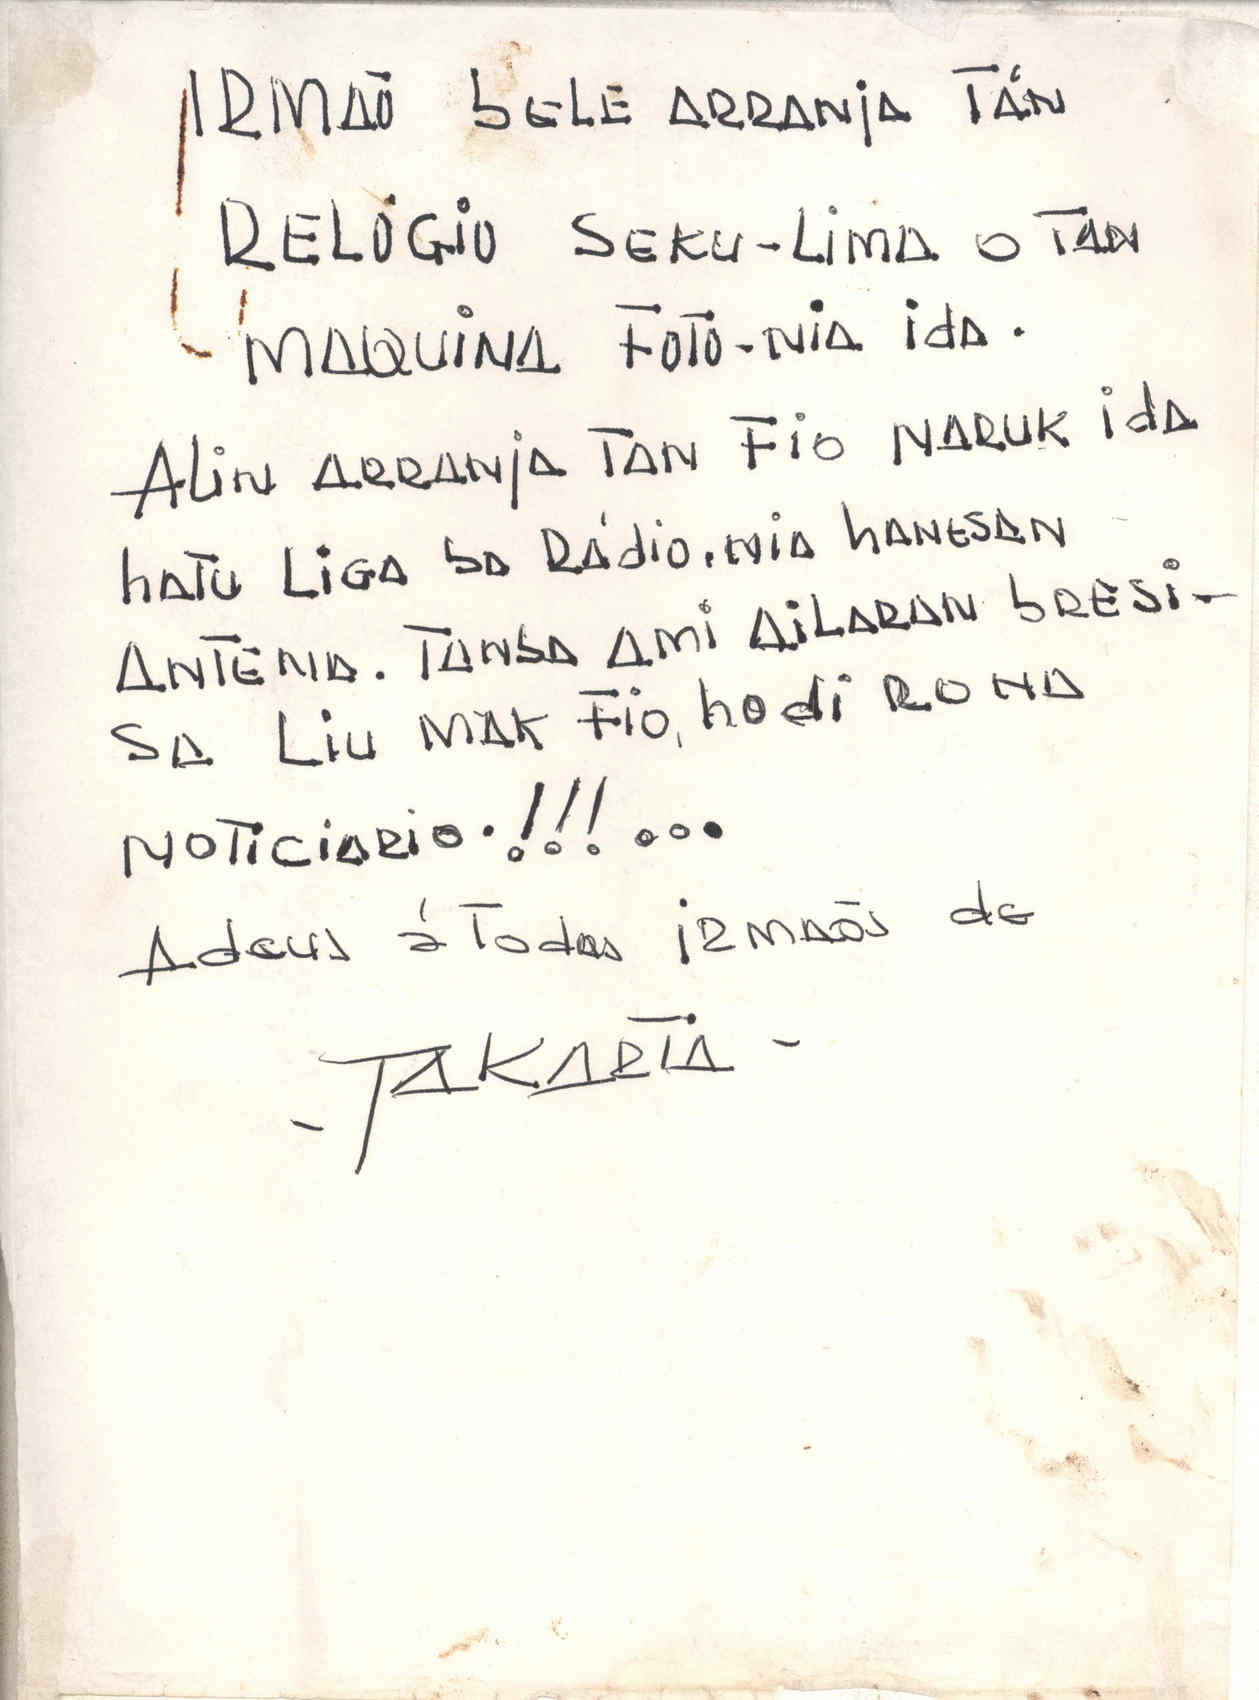 IRMAÕ bELE ARRANjA TÁN
RELÓGiO SEKU-LiMA O TAN
MAQUiNA FOTO-NiA idA.
ALiN ARRANjA TAN FiO NARUK idA
hATU LiGA bA RÁdiO.NiA hANESAN
ANTENA. TANbA AMi AiLARAN bRESi-
SA LiU MAK FiO, hodi RONA
NOTiCiARiO.!!!...
Adeus á Todos iRMAÕS de
-JAKARTA-